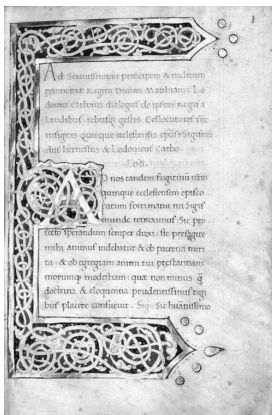 Ad Serenissimum principem & inclitum
pannoniae Regem Divum Matthiam Lo
dovici Carbonis dialogus de ipsius Regis
laudibus rebusq; gestis. Collocutores sūt
insignis quinque ecclesiensis epūs Sigismū
dus hernestus & Lodovicus Carbo
Lod.
AD nos tandem
quinque ecclesiensem episco
patum fortunatum mi Sigis
munde remaximus: Sic pro
fecto sperandum semper duxi: sic presagire
mihi animus videbatur & ob paternā meri
ta: & ob egregiam animi tui prestantiam
morumq; modestiam: quae non minus q̄
doctrina & eloquentia prudentissimis regi
bus placere consuevit. Sig. Sic humanissimo